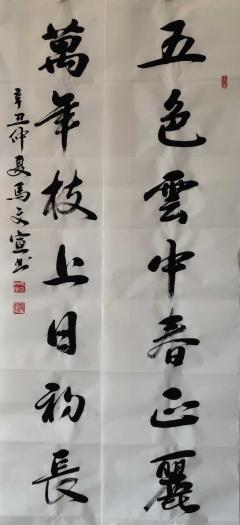 五色雲中春正麗
萬年枝上日初長
辛丑仲夏馬文宣书